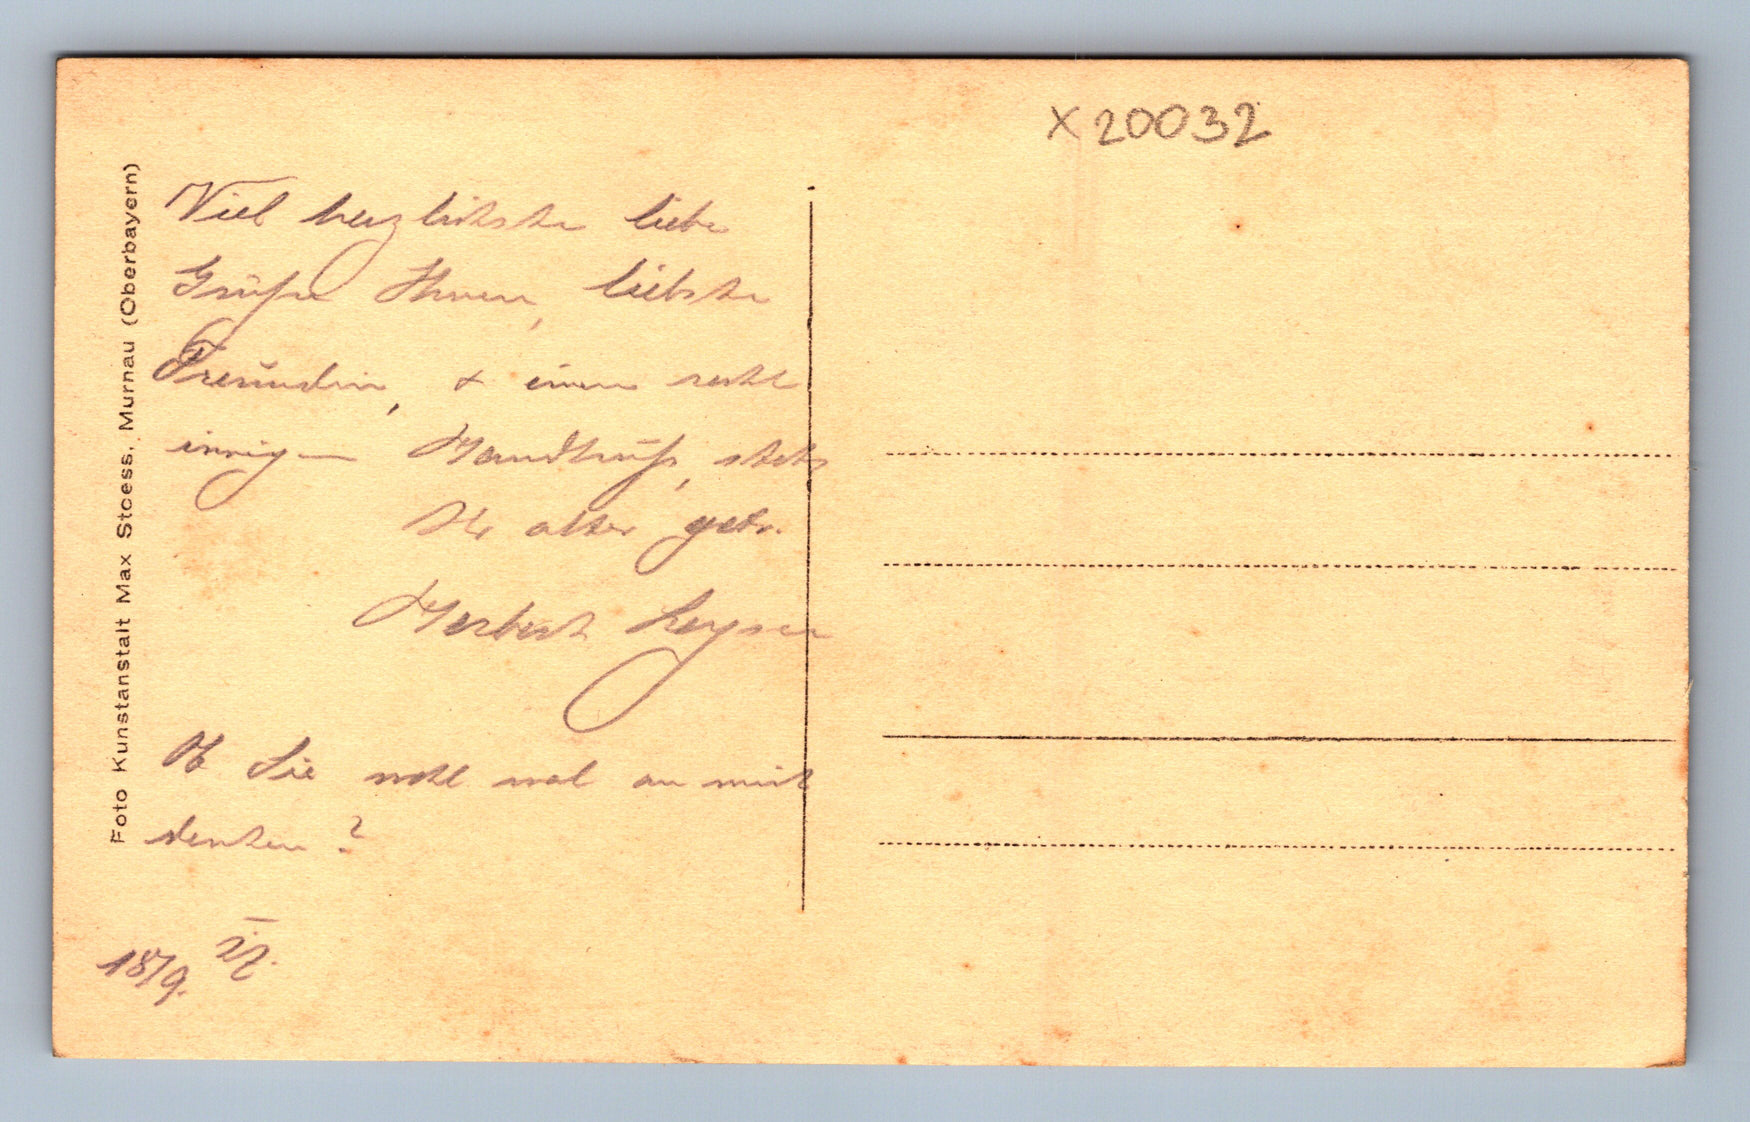 X 20032
Viel herzlichste liebe
Grüße Ihnen, liebste
Freundin, & einen recht
innigen Handkuß, stets
Ihr alter, getr.
Herbert Leyser
Ob Sie wohl mal an mich
denken?
18/9. 27.
Foto Kunstanstalt Max Stoess, Murnau (Oberbayern)